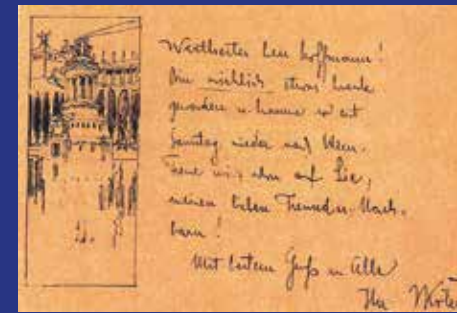 Werthester Herr Hoffmann!
Bin wirklich etwas krank
geworden u. komme erst
Samstag wieder nach Wien.
Freue mich schon auf Sie,
meinen lieben Freund u. Nach-
barn!
Mit bestem Gruß an Alle
Ihr